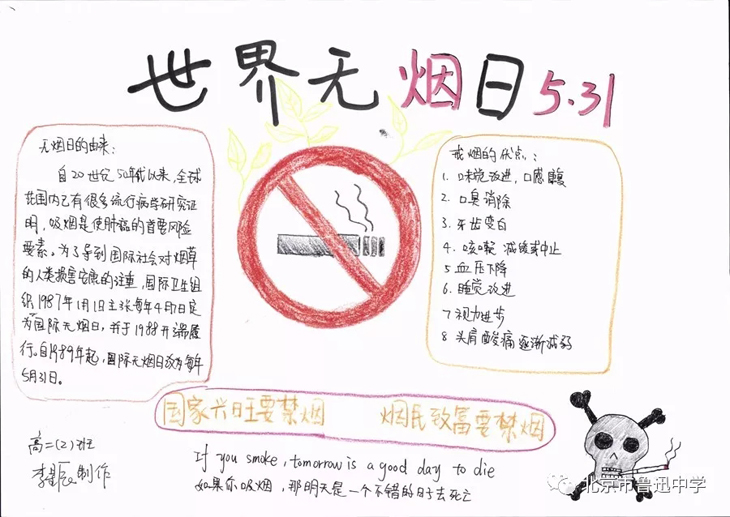 世界无烟日 5.31
无烟日的由来：
自20世纪50年代以来，全球
范围内已有很多流行病学研究证
明，吸烟是使肺癌的首要风险
要素。为了引起国际社会对烟草
的人类损害健康的注重，国际卫生组
织1987年1月1日主张每年4月7日定
为国际无烟日，并于1988开端履
行。自1989年起，国际无烟日改为每年
5月31日。
戒烟的优点：
1. 味觉改进，口感康复
2. 口臭消除
3. 牙齿变白
4. 咳嗽 减缓或中止
5 血压下降
6. 睡觉改进
7 视力进步
8 头肩酸痛逐渐减弱
国家兴旺要禁烟 烟民致富要禁烟
If you smoke, tomorrow is a good day to die
如果你吸烟，那明天是一个不错的日子去死亡
高二(2)班
李 制作
北京市鲁迅中学